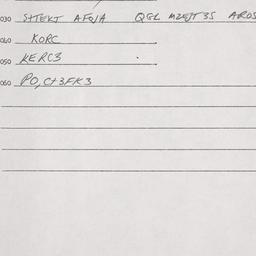 030 SHTEKT AFQJA QGL MZEJT 3S AROS
040 KORC
050 KERC3
060 PO, CT3FK3